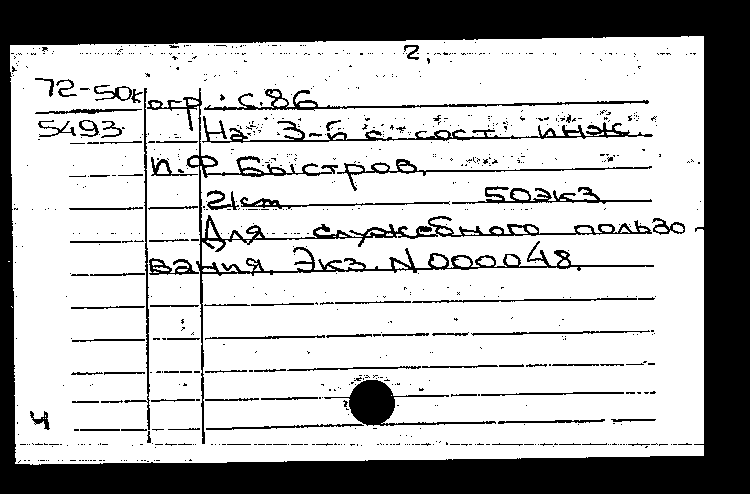 2.
72-50к огр.: с.86
5493 На 3-й с. сост. инж.
П.Ф. Быстров.
21см 50экз
Для служебного пользо-
вания. Экз. N 000048.
Ч